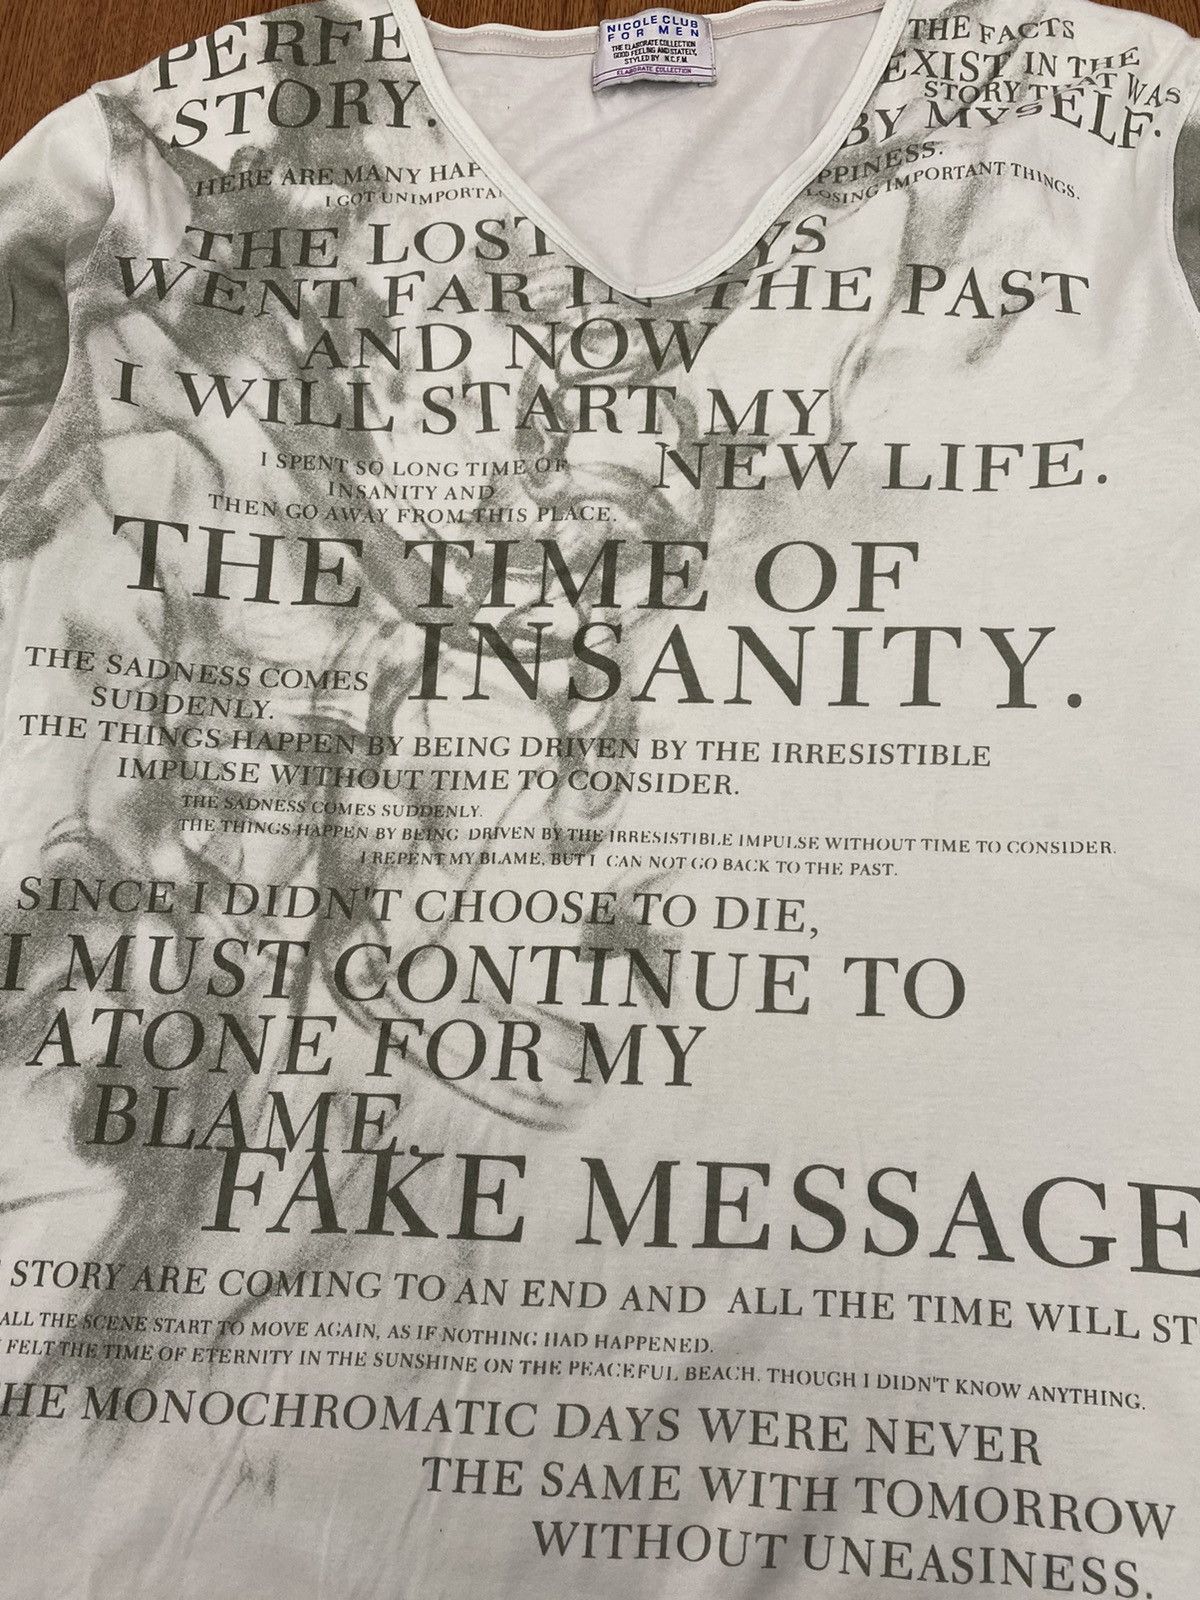 NICOLE CLUB
FOR MEN
THE ELABORATE COLLECTION
GOOD FEELING AND STATELY,
STYLED BY N.C.F.M.
ELABORATE COLLECTION
PERFE
STORY.
THE FACTS
EXIST IN THE
STORY THAT WAS
BY MYSELF.
HERE ARE MANY HAP
PPINESS.
I GOT UNIMPORTA
LOSING IMPORTANT THINGS.
THE LOST YS
WENT FAR IN THE PAST
AND NOW
I WILL START MY
NEW LIFE.
I SPENT SO LONG TIME OF
INSANITY AND
THEN GO AWAY FROM THIS PLACE.
THE TIME OF
INSANITY.
THE SADNESS COMES
SUDDENLY.
THE THINGS HAPPEN BY BEING DRIVEN BY THE IRRESISTIBLE
IMPULSE WITHOUT TIME TO CONSIDER.
THE SADNESS COMES SUDDENLY.
THE THINGS HAPPEN BY BEING DRIVEN BY THE IRRESISTIBLE IMPULSE WITHOUT TIME TO CONSIDER.
I REPENT MY BLAME, BUT I CAN NOT GO BACK TO THE PAST.
SINCE I DIDN'T CHOOSE TO DIE,
I MUST CONTINUE TO
ATONE FOR MY
BLAME.
FAKE MESSAGE
STORY ARE COMING TO AN END AND ALL THE TIME WILL ST
ALL THE SCENE START TO MOVE AGAIN, AS IF NOTHING HAD HAPPENED.
I FELT THE TIME OF ETERNITY IN THE SUNSHINE ON THE PEACEFUL BEACH. THOUGH I DIDN'T KNOW ANYTHING.
HE MONOCHROMATIC DAYS WERE NEVER
THE SAME WITH TOMORROW
WITHOUT UNEASINESS.